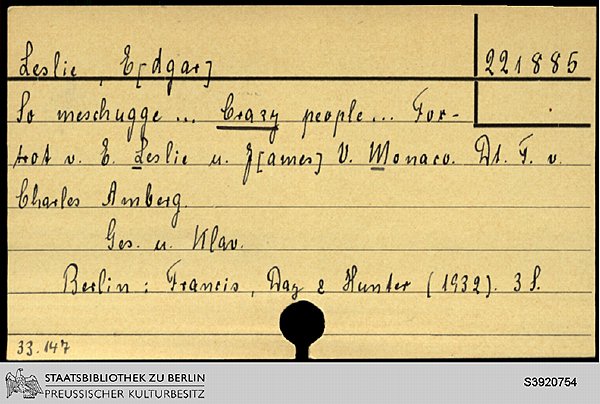 Leslie, E[dgar]
221885
So meschugge... Crazy people... Fox-
trot v. E. Leslie u. J[ames] V. Monaco. Dt. T. v.
Charles Amberg.
Ges. u. Klav.
Berlin: Francis, Day & Hunter (1932). 3 S.
33.147
STAATSBIBLIOTHEK ZU BERLIN
PREUSSISCHER KULTURBESITZ
S3920754